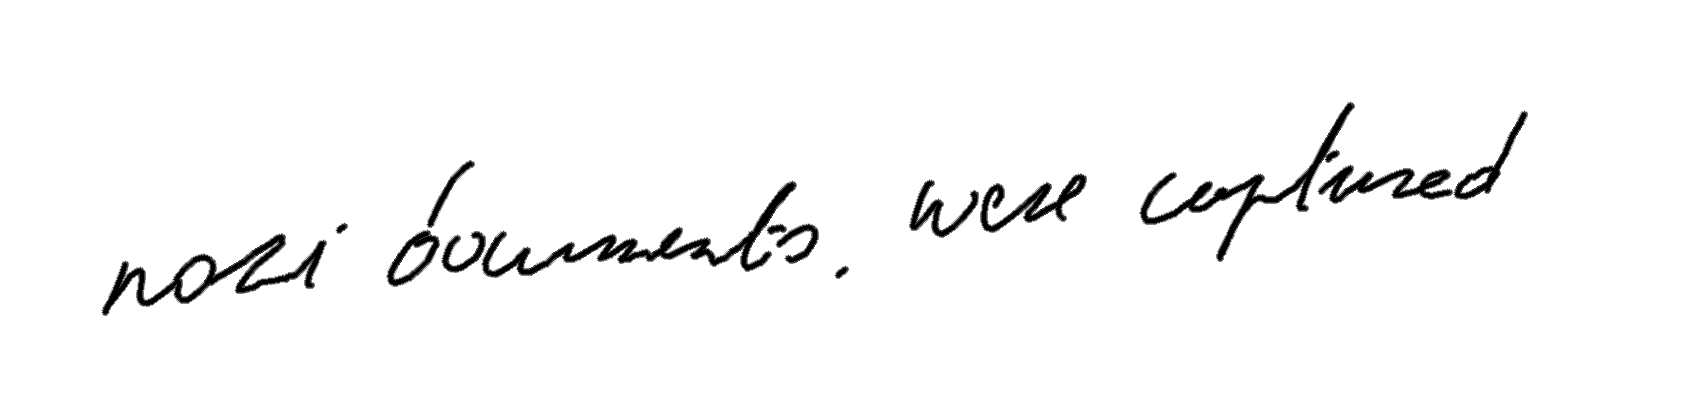 nazi documents. were captured